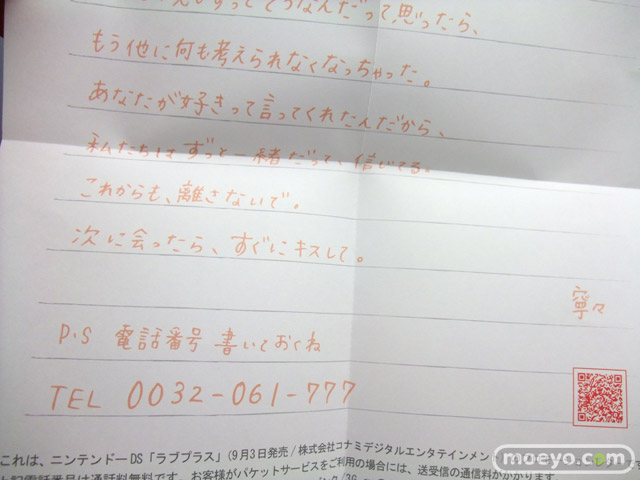 ずっとそうなんだって思ったら、
もう他に何も考えられなくなっちゃった。
あなたが好きって言ってくれたんだから、
私たちはずっと一緒だって、信じてる。
これからも、離さないで。
次に会ったら、すぐにキスして。
寧々
P.S 電話番号 書いておくね
TEL 0032-061-777
これは、ニンテンドーDS「ラブプラス」(9月3日発売/株式会社コナミデジタルエンタテインメン
電話番号は通話料無料です。お客様がパケットサービスをご利用の場合には、送受信の通信料がかかります
moeyo.com